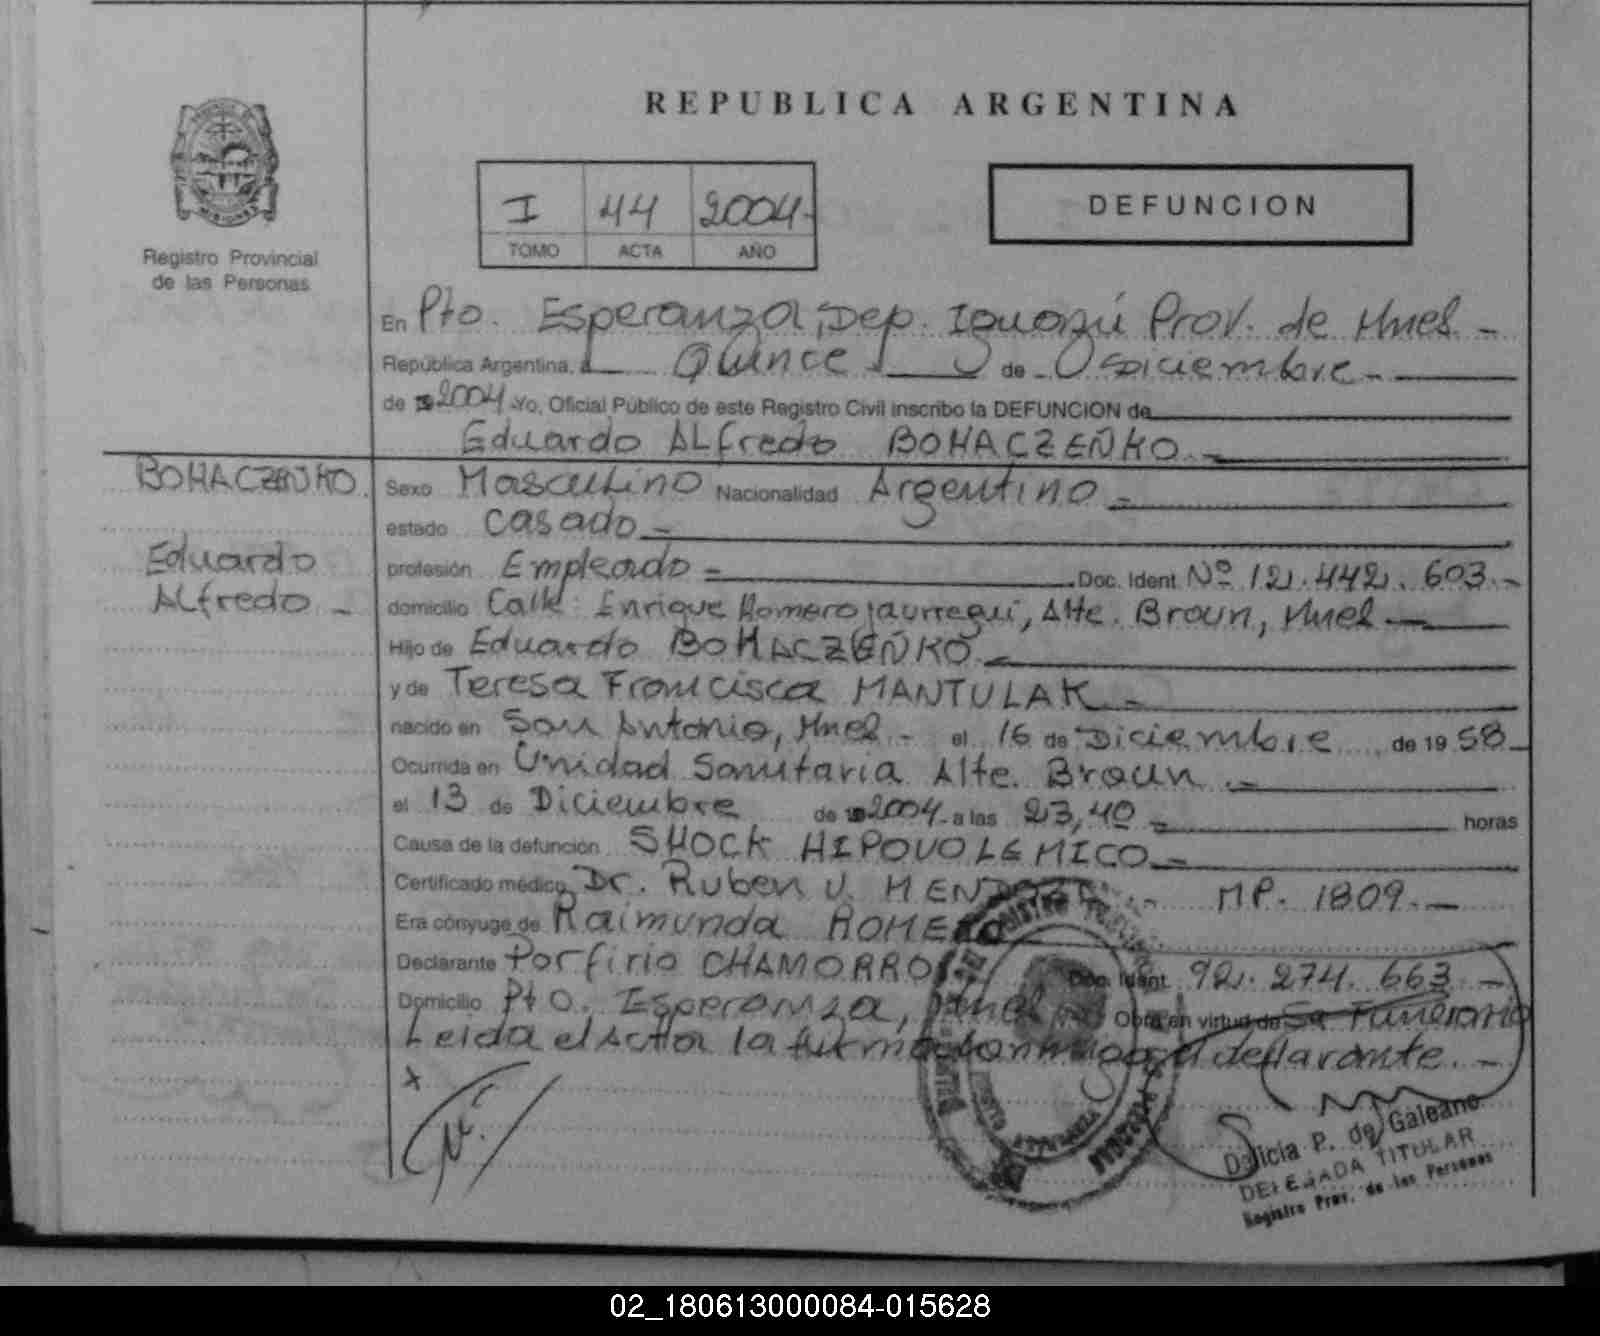 REPUBLICA ARGENTINA
MISIONES
Registro Provincial
de las Personas
I 44 2004-
TOMO ACTA AÑO
DEFUNCION
En Pto. Esperanza, Dep. Iguazú Prov. de Mnes -
República Argentina, a Quince de Diciembre -
de 2004 Yo, Oficial Público de este Registro Civil inscribo la DEFUNCION de
Eduardo ALfredo BOHACZEÑKO -
BOHACZEÑKO.
Eduardo
ALfredo -
Sexo Masculino Nacionalidad Argentino -
estado Casado -
profesión Empleado - Doc. Ident. Nº 12.442.603 -
domicilio Calle: Enrique Romero Jaurregui, Alte. Broun, Mnes -
Hijo de Eduardo BOHACZEÑKO -
y de Teresa Francisca MANTULAK -
nacido en San Antonio, Mnes - el 16 de Diciembre de 19 58 -
Ocurrida en Unidad Sanitaria Alte. Broun -
el 13 de Diciembre de 2004 - a las 23,40 - horas
Causa de la defunción SHOCK HIPOVOLEMICO -
Certificado médico Dr. Ruben V. MENDOZA - MP. 1809 -
Era cónyuge de Raimunda ROMERO
Declarante Porfirio CHAMORRO Doc. Ident. 92.274.663 -
Domicilio Pto. Esperanza, Mnes Obra en virtud de Se Funerario
Leida el Acta la firma conmigo el declarante. -
x
Dalicia P. de Galeano
DELEGADA TITULAR
Registro Prov. de las Personas
02_180613000084-015628